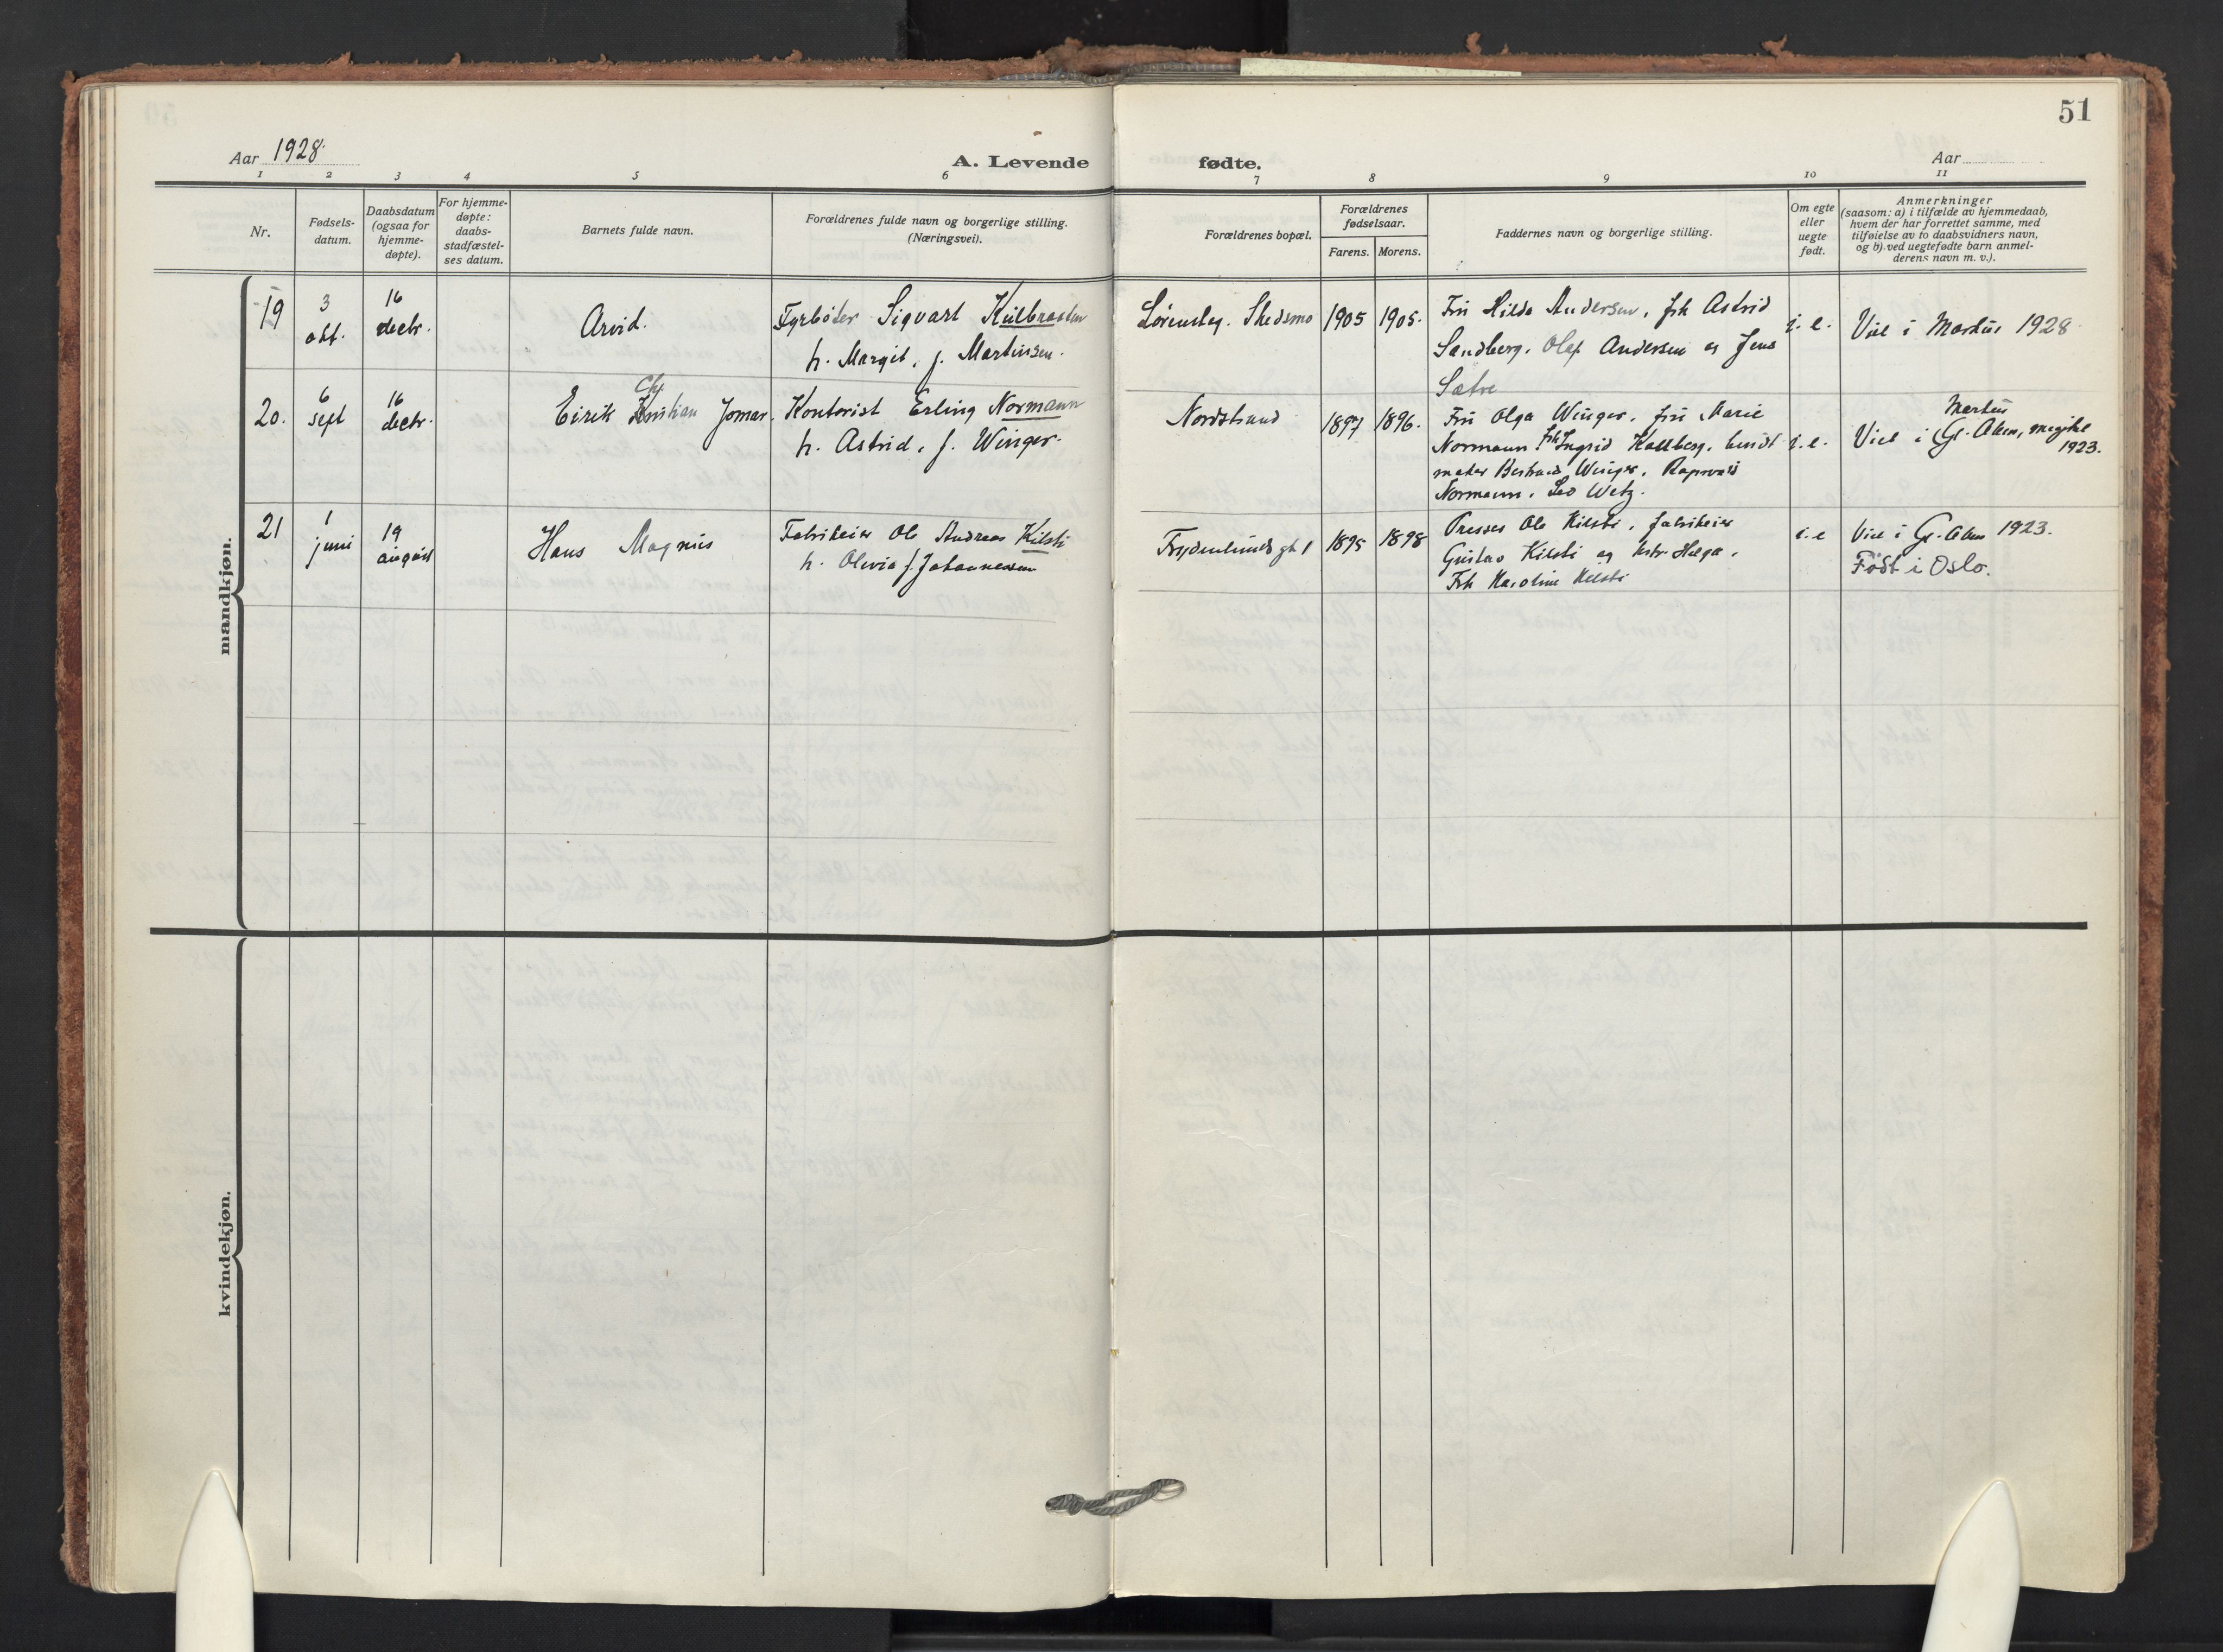 51
Aar 1928.
A. Levende fødte.
Aar
1 2 3 4 5 6 7 8 9 10 11
Nr.
Fødsels-
datum.
Daabsdatum
(ogsaa for
hjemme-
døpte).
For hjemme-
døpte:
daabs-
stadfæstel-
ses datum.
Barnets fulde navn.
Forældrenes fulde navn og borgerlige stilling.
(Næringsvei).
Forældrenes bopæl.
Forældrenes
fødselsaar.
Farens. Morens.
Faddernes navn og borgerlige stilling.
Om egte
eller
uegte
født.
Anmerkninger
(saasom: a) i tilfælde av hjemmedaab,
hvem der har forrettet samme, med
tilføielse av to daabsvidners navn,
og b) ved uegtefødte barn anmel-
derens navn m. v.).
mandkjøn.
19
3
okt.
16
decbr.
Arvid.
Fyrbøter Sigvart Kulbraaten
h. Margit, f. Martinsen.
Lørenskog. Skedsmo
1905
1905.
Fru Hilda Andersen, frk Astrid
Sandberg, Olaf Andersen og Jens
Sætre
i. e.
Viet i Markus 1928
20.
6
sept
16
decbr.
Ch
Eirik Kristian Jomar.
Kontorist Erling Normann
h. Astrid, f. Winger.
Nordstrand
1897
1896.
Fru Olga Winger, fru Marie
Normann, frk Ingrid Kallberg, kunst
maler Bertrand Winger, Ragnvald
Normann, Leo Wetz.
i. e.
Markus
Viet i Gl. Aker, menighet
1923.
21
1
juni
19
august
Hans Magnus
Fabrikeier Ole Andreas Kilsti
h. Olivia f. Johannessen
Frydenlunds gt 1
1895
1898
Presser Ole Kilsti, fabrikeier
Gustav Kilsti og hstr. Helga,
Frk Karoline Kilsti
i. e
Viet i Gl. Aker 1923.
Født i Oslo.
kvindekjøn.